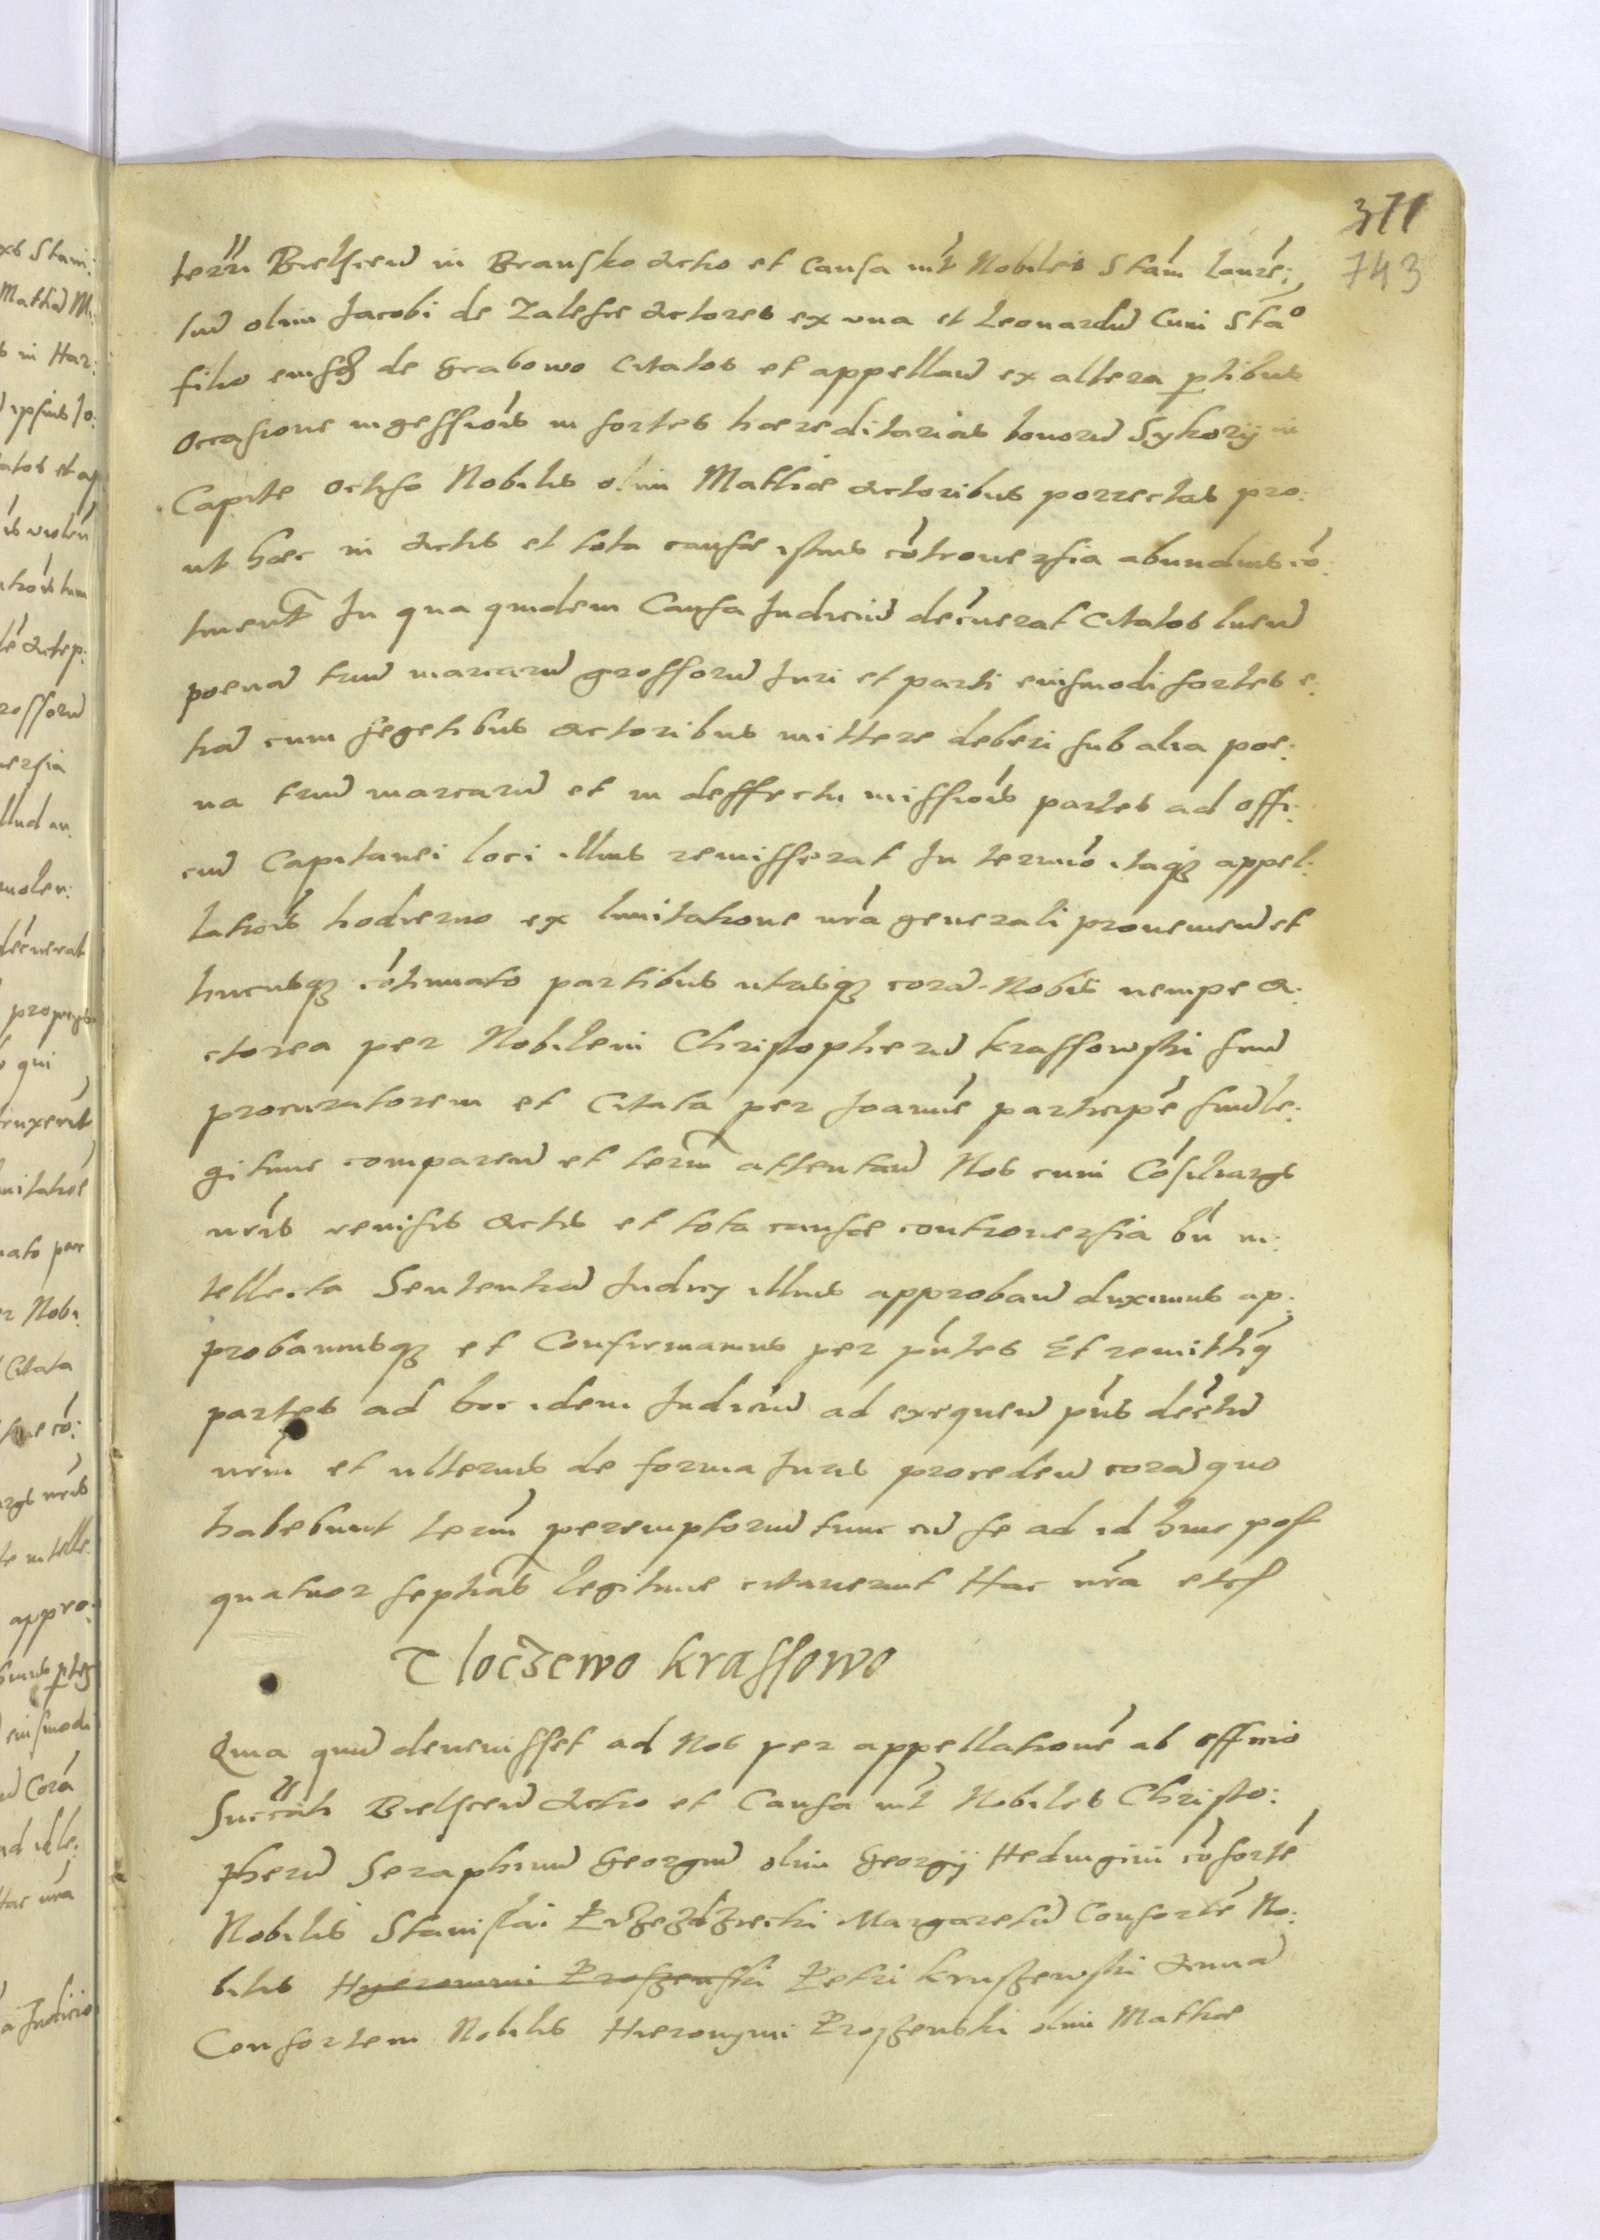 371
743
terrī Bielscen̄ in Bransko Actio et Causa int̄ Nobiles Stān Laurē:
tiu̅ olim Jacobi de Zalesie Actores ex una et Leonardu̅ cum Stāo
filio eiusdē de Grabowo Citatos et appellan̄ ex altera ꝑtibus
occasione ingessiōis in sortes haereditarias bonoru̅ Sykory in
Capite occiso Nobilis olim Mathiae Actoribus porrectas pro:
ut haec in Actis et tota causae istius cōtrouersia abundius cō:
tinent̄ In qua quidem Causa Judiciu̅ decreuerat Citatos luen̄
poena̅ triu̅ marcaru̅ grossoru̅ Juri et parti eiusmodi sortes e:
tia̅ cum segetibus Actoribus mittere deberi sub alia poe:
na triu̅ marcaru̅ et in deffectu missiōis partes ad offi:
ciu̅ Capitanei loci illius remisserat In termīo itaqꝫ appel:
latiōis hodierno ex limitatione nr̄a generali prouenien̄ et
hucusqꝫ cōtinuato partibus utrisqꝫ cora̅ Nobis nempe A:
ctorea per Nobilem Christopheru̅ Krassowski suu̅
procuratorem et Citata per Joannē participē suu̅ le:
gitime comparen̄ et term̄ attentan̄ Nos cum Cōsiliarijs
nr̄is reuisis Actis et tota causae controuersia bn̄ in:
tellecta Sententia̅ Judicij illius approban̄ duximus ap:
probamusqꝫ et Confirmamus per pn̄tes Et remittim̄
partes ad hoc idem Judiciu̅ ad exequen̄ pn̄s decr̄tu̅
nrm̄ et ulterius de forma Juris proceden̄ cora̅ quo
habebunt term̄ peremptoriu̅ tunc cu̅ se ad id hinc post
quatuor septīas legitime citauerint Hac nr̄a etc
Tloczewo Krassowo
Quia quu̅ deuenisset ad Nos per appellationē ab officio
Succāli Bielscen̄ Actio et Causa int̄ Nobiles Christo:
pheru̅ Seraphinu̅ Georgiu̅ olim Georgij Hedwigim cōsortē
Nobilis Stanislai Margareta̅ Consortē No:
bilis Hyeronimi Proszenski Petri Kruszewski Anna̅
Consortem Nobilis Hieronymi Proszenski olim Mathiae